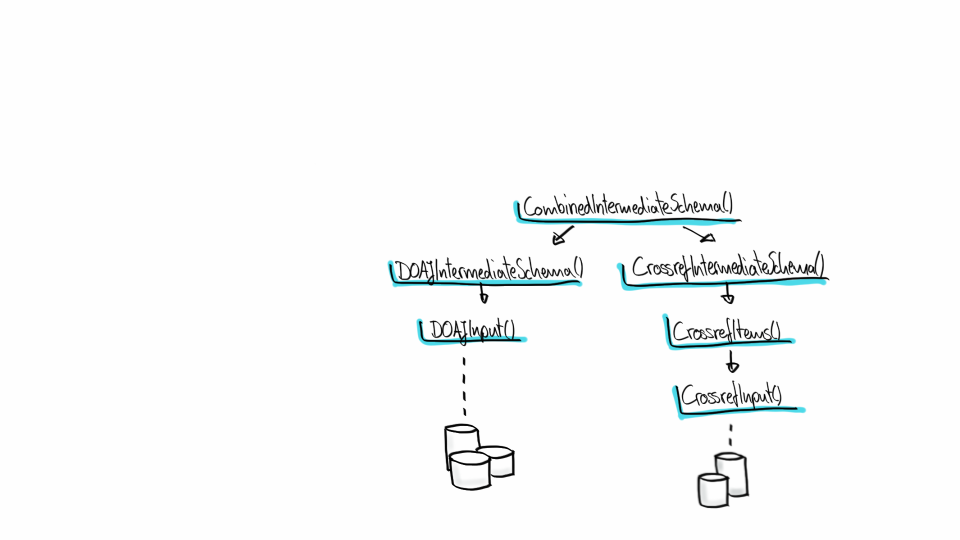 CombinedIntermediateSchema()
DOAJIntermediateSchema() CrossrefIntermediateSchema()
DOAJInput() CrossrefItems()
CrossrefInput()